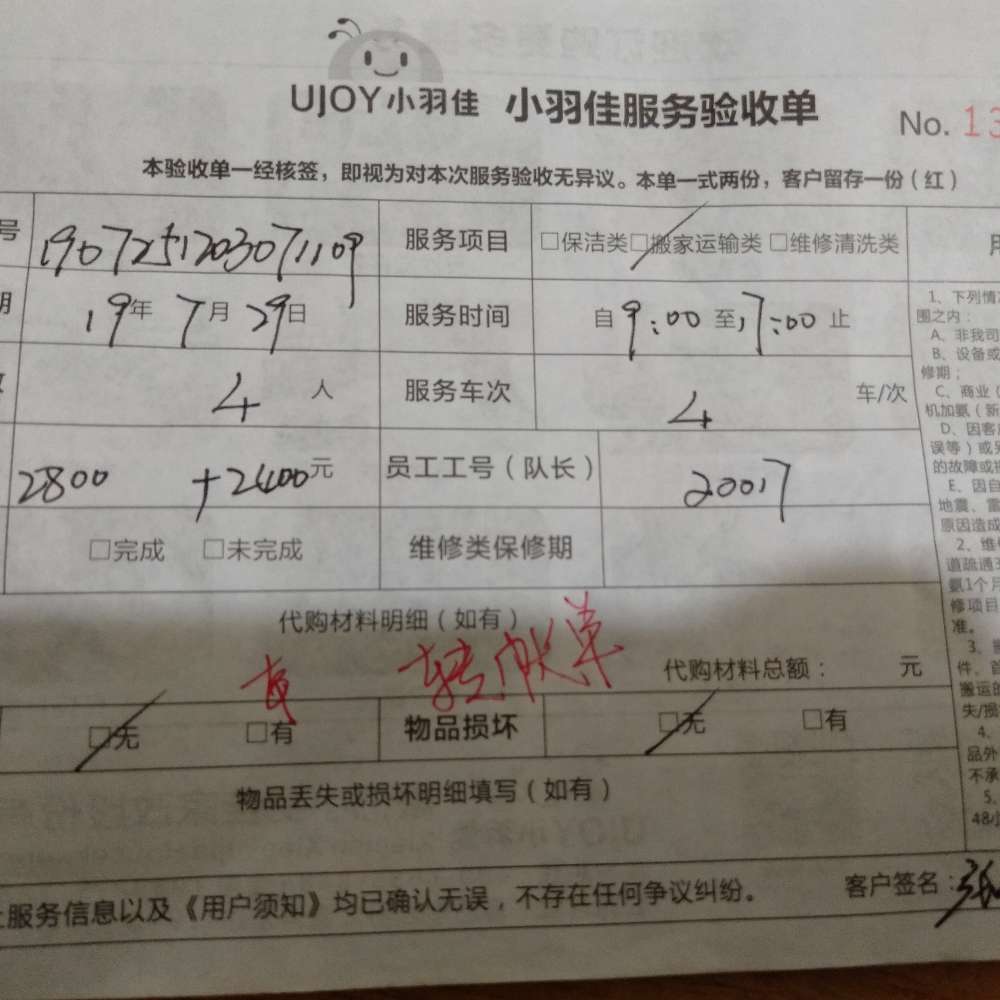 UJOY小羽佳 小羽佳服务验收单
No. 13
本验收单一经核签，即视为对本次服务验收无异议。本单一式两份，客户留存一份（红）
号 1907251203071109 服务项目 □保洁类□搬家运输类 □维修清洗类 用
期 19年 7月 29日 服务时间 自 9:00 至 17:00 止
4 人 服务车次 4 车/次
2800 +2400元 员工工号（队长） 20017
□完成 □未完成 维修类保修期
代购材料明细（如有）
转帐单
代购材料总额： 元
□无 □有 物品损坏 □无 □有
物品丢失或损坏明细填写（如有）
上服务信息以及《用户须知》均已确认无误，不存在任何争议纠纷。 客户签名：
1、下列情
围之内：
A、非我司
B、设备或
修期；
C、商业（
机加氨（新
D、因客户
误等）或另
的故障或损
E、因自
地震、雷
原因造成
2、维修
道疏通
氨1个月
修项目
准。
3、
件。首
搬运的
失/损
4、
品外
不承
5、
48小